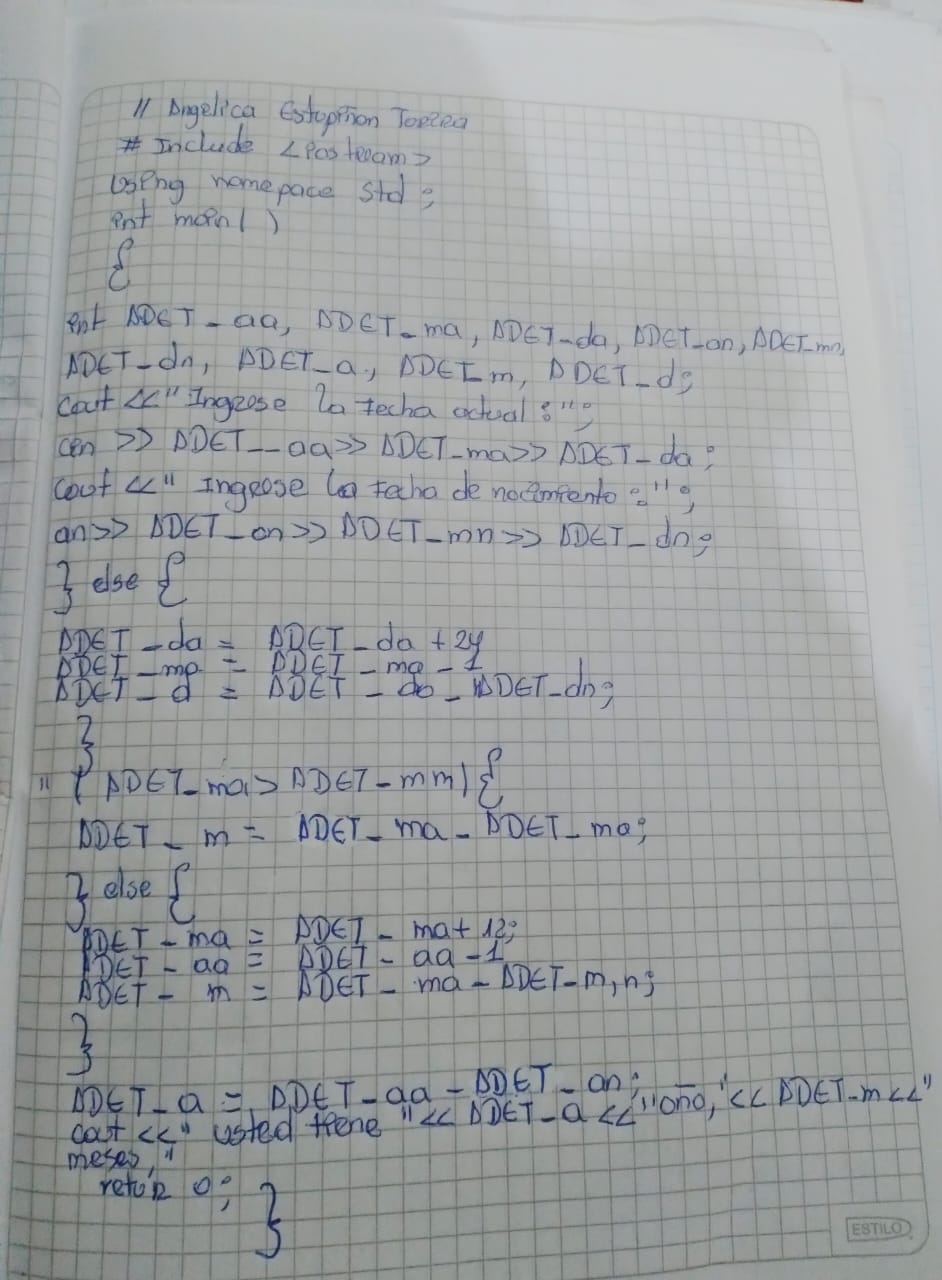 // Angelica Estopiñon Torrea
# Include <Posteeam>
Using nomepace Std;
int main( )
{
int ADET_aa, ADET_ma, ADET_da, ADET_an, ADET_mn,
ADET_dn, ADET_a, ADET_m, ADET_d;
cout <<" Ingrese la fecha actual :";
cin >> ADET__aa>> ADET_ma>> ADET_da;
cout <<" Ingrese la fecha de nacimiento :";
cin>> ADET_an>> ADET_mn>> ADET_dn;
} else {
ADET_da = ADET_da + 24
ADET_ma = ADET_ma - 1
ADET_d = ADET_da - ADET_dn;
}
" ( ADET_ma> ADET_mm) {
ADET_m = ADET_ma - ADET_ma;
} else {
ADET_ma = ADET_ma + 12;
ADET_aa = ADET_aa - 1
ADET_m = ADET_ma - ADET_m,n;
}
ADET_a = ADET_aa - ADET_an;
cout <<" usted tiene "<< ADET_a <<"año, "<< ADET_m <<"
meses,"
retur 0; }
ESTILO